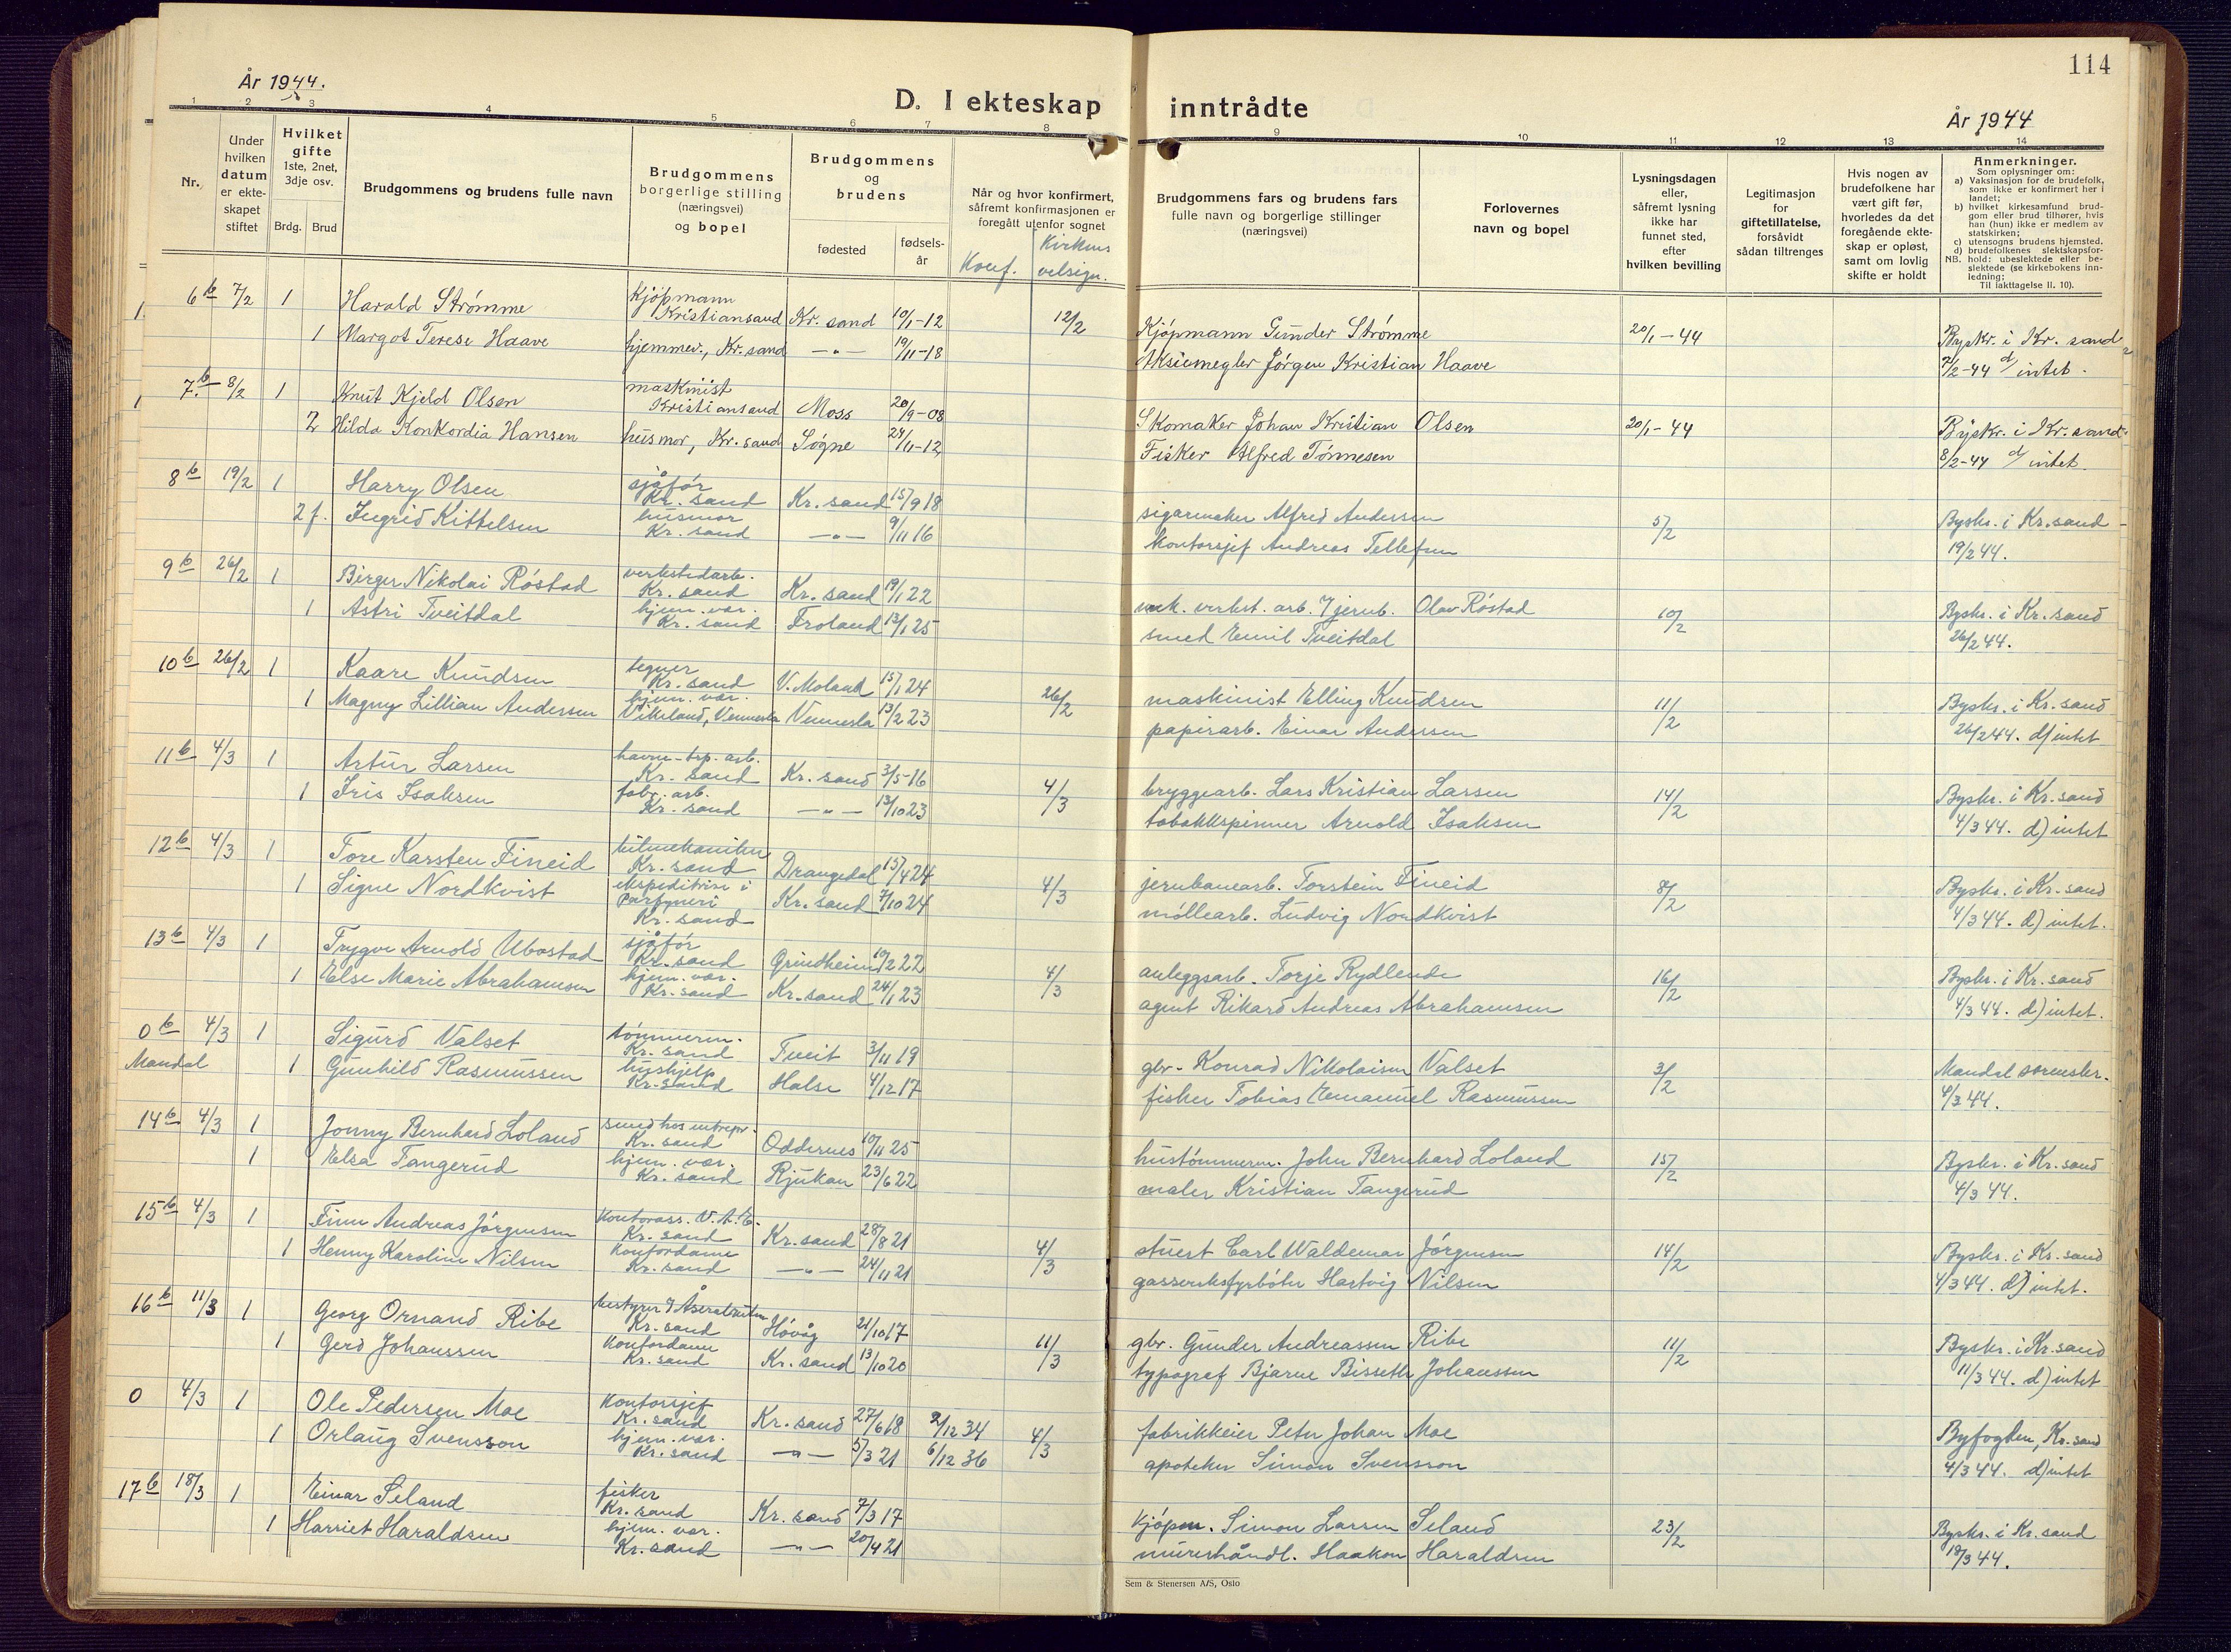 114
År 1944.
D. I ekteskap inntrådte
År 1944
1 2 3 4 5 6 7 8 9 10 11 12 13 14
Nr.
Under hvilken datum er ekteskapet stiftet
Hvilket gifte 1ste, 2net, 3dje osv.
Brdg. Brud
Brudgommens og brudens fulle navn
Brudgommens borgerlige stilling (næringsvei) og bopel
Brudgommens og brudens
fødested
fødselsår
Når og hvor konfirmert, såfremt konfirmasjonen er foregått utenfor sognet
Konf. Kirkens velsign.
Brudgommens fars og brudens fars fulle navn og borgerlige stillinger (næringsvei)
Forlovernes navn og bopel
Lysningsdagen eller, såfremt lysning ikke har funnet sted, efter hvilken bevilling
Legitimasjon for giftetillatelse, forsåvidt sådan tiltrenges
Hvis nogen av brudefolkene har vært gift før, hvorledes da det foregående ekteskap er opløst, samt om lovlig skifte er holdt
Anmerkninger.
Som oplysninger om:
a) Vaksinasjon for de brudefolk, som ikke er konfirmert her i landet;
b) hvilket kirkesamfund brudgom eller brud tilhører, hvis han (hun) ikke er medlem av statskirken;
c) utensogns brudens hjemsted,
d) brudefolkenes slektskapsforhold: ubeslektede eller beslektede (se kirkebokens innledning;
NB.
Til iakttagelse II. 10).
6 b 7/2 1 Harald Strømme Kjøpmann Kristiansand Kr. sand 10/1-12 12/2 Kjøpmann Gunder Strømme 20/1-44 Byskr. i Kr. sand
1 Margot Terese Haave hjemmev., Kr. sand —"— 19/11-18 Aksiemegler Jørgen Kristian Haave 7/2-44 d/ intet.
7. b 8/2 1 Knut Kjeld Olsen maskinist Kristiansand Moss 20/9-08 Skomaker Johan Kristian Olsen 20/1-44 Byskr. i Kr. sand
2 Hilda Konkordia Hansen husmor, Kr. sand Søgne 24/11-12 Fisker Alfred Tønnesen 8/2-44 d/ intet.
8 b 19/2 1 Harry Olsen sjåfør Kr. sand Kr. sand 15/9 18 sigarmaker Alfred Andersen 5/2 Byskr. i Kr. sand
2 f. Ingrid Kittelsen husmor Kr. sand —"— 9/11 16 kontorsjef Andreas Tellefsen 19/2 44.
9 b 26/2 1 Birger Nikolai Røstad verkstedarb. Kr. sand Kr. sand 19/1 22 verkst. arb. Olav Røstad 10/2 Byskr. i Kr. sand
1 Astri Tveitdal hjem. vær. Kr. sand Froland 13/1 25 smed Emil Tveitdal 26/2 44.
10 b 26/2 1 Kaare Knudsen tegner Kr. sand V. Moland 15/1 24 26/2 maskinist Elling Knudsen 11/2 Byskr. i Kr. sand
1 Magny Lillian Andersen hjem. vær. Vikeland, Vennesla Vennesla 13/2 23 papirarb. Einar Andersen 26/2 44. d) intet
11 b 4/3 1 Artur Larsen havne-trp. arb. Kr. sand Kr. sand 3/5-16 4/3 bryggearb. Lars Kristian Larsen 14/2 Byskr. i Kr. sand
1 Iris Isaksen fabr. arb. Kr. sand —"— 13/10 23 tobakkspinner Arnold Isaksen 4/3 44. d) intet
12 b 4/3 1 Tore Karsten Fineid bilmekaniker Kr. sand Drangedal 15/4 24 4/3 jernbanearb. Torstein Fineid 8/2 Byskr. i Kr. sand
1 Signe Nordkvist ekspeditrise i parfymeri Kr. sand Kr. sand 7/10 24 møllearb. Ludvig Nordkvist 4/3 44. d) intet.
13 b 4/3 1 Trygve Arnold Ubostad sjåfør Kr. sand Grindheim 19/2 22 4/3 anleggsarb. Torje Rydlende 16/2 Byskr. i Kr. sand
1 Else Marie Abrahamsen hjem. vær. Kr. sand Kr. sand 24/1 23 agent Rikard Andreas Abrahamsen 4/3 44. d) intet.
0 b 4/3 1 Sigurd Valset tømmerm. Kr. sand Tveit 3/11 19 gbr. Konrad Nikolaisen Valset 3/2 Mandal sorenskr.
Mandal 1 Gunhild Rasmussen hushjelp Kr. sand Halse 4/12 17 fisker Tobias Emanuel Rasmussen 4/3 44.
14 b 4/3 1 Jonny Bernhard Loland smed hos entrepr. Kr. sand Oddernes 19/11 25 hustømmerm. John Bernhard Loland 15/2 Byskr. i Kr. sand
1 Elsa Tangerud hjem. vær. Kr. sand Rjukan 23/6 22 maler Kristian Tangerud 4/3 44.
15 b 4/3 1 Finn Andreas Jørgensen kontorass. Kr. sand Kr. sand 28/8 21 4/3 stuert Carl Waldemar Jørgensen 14/2 Byskr. i Kr. sand
1 Henny Karoline Nilsen kontordame Kr. sand —"— 24/11 21 gassverksfyrbøter Hartvig Nilsen 4/3 44. d) intet.
16 b 11/3 1 Georg Ornand Ribe bestyrer Kr. sand Høvåg 21/10 17 11/3 gbr. Gunder Andreassen Ribe 11/2 Byskr. i Kr. sand
1 Gerd Johanssen kontordame Kr. sand Kr. sand 13/10 20 typograf Bjarne Bisseth Johanssen 11/3 44. d) intet
0 4/3 1 Ole Pedersen Moe kontorsjef Kr. sand Kr. sand 27/6 18 2/12 34 4/3 fabrikkeier Peter Johan Moe Byfogden, Kr. sand
1 Orlaug Svensson hjem. vær. Kr. sand —"— 5/3 21 6/12 36 apoteker Simon Svensson 4/3 44. d) intet
17 b 18/3 1 Einar Seland fisker Kr. sand Kr. sand 7/3 17 kjøpm. Simon Larsen Seland 23/2 Byskr. i Kr. sand
1 Harriet Haraldsen hjem. vær. Kr. sand —"— 20/4 21 murerhåndl. Haakon Haraldsen 18/3 44.
Sem & Stenersen A/S, Oslo